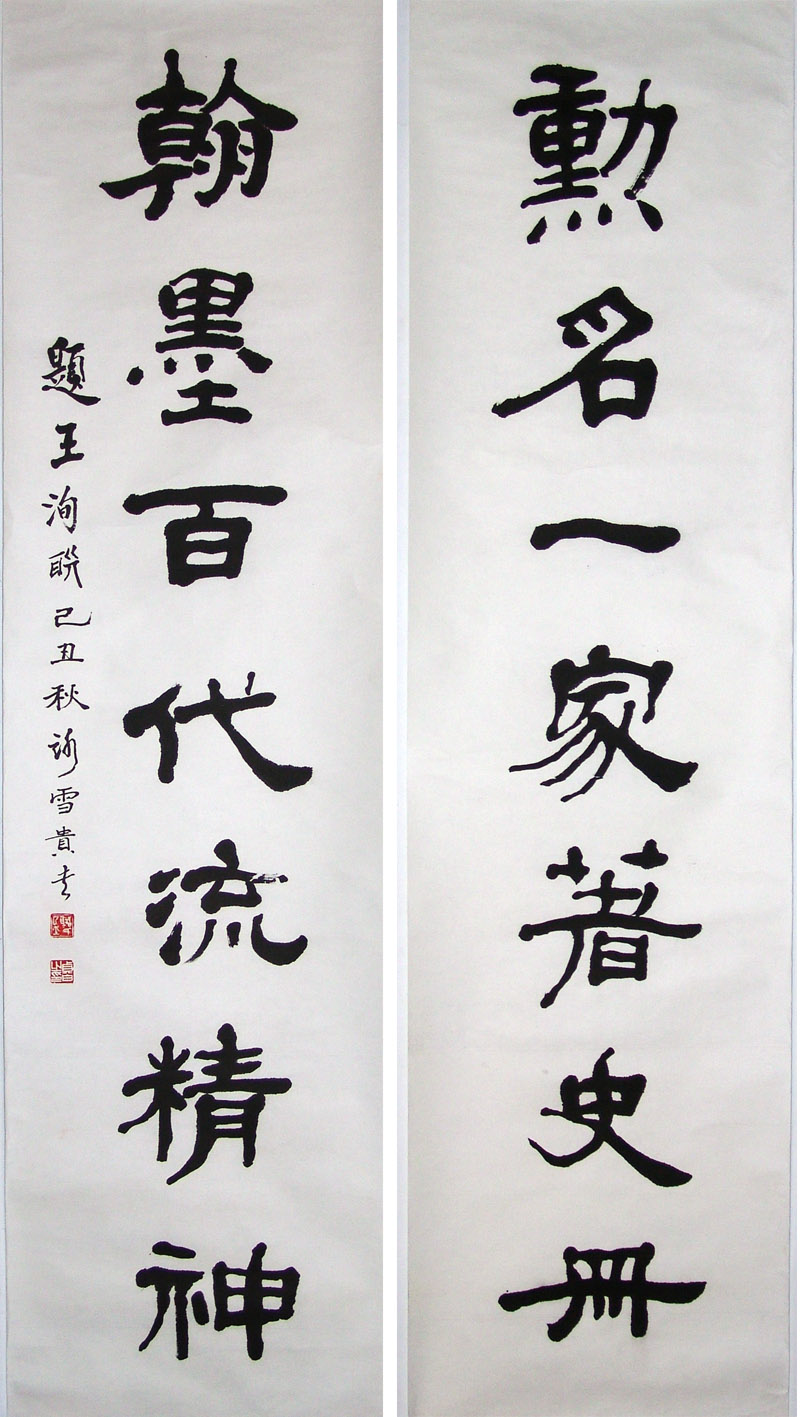 勲名一家著史冊
翰墨百代流精神
題王洵聮己丑秋詠雪貴書